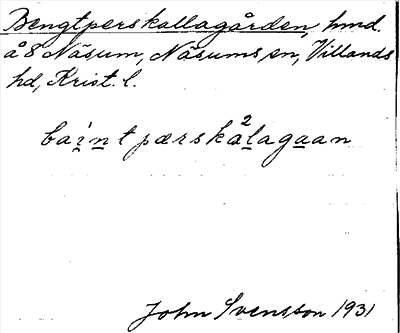 Bengtperskallagården, hmd.
å 8 Näsum, Näsums sn, Villands
hd, Krist. l.
baintpærskalagaan
2
John Svensson 1931